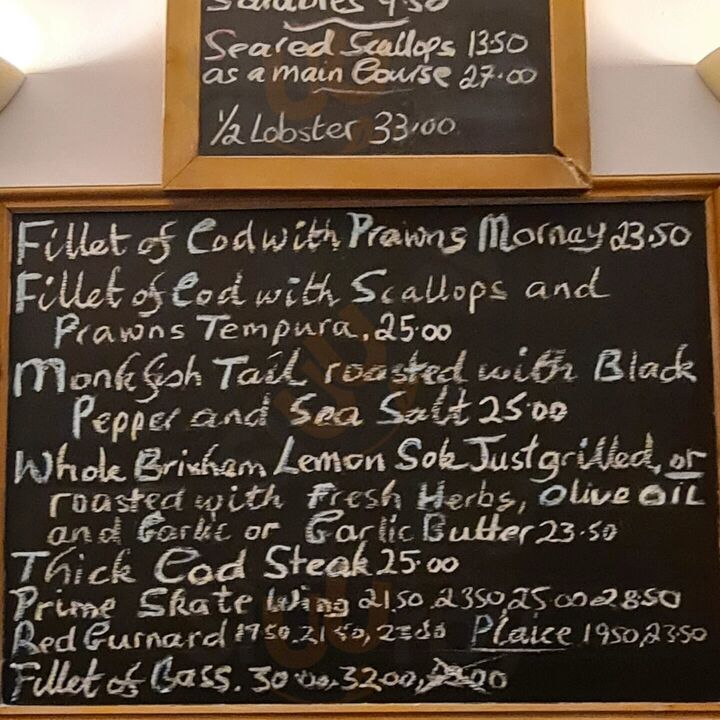 9.50
Seared Scallops 13.50
as a main Course 27.00
1/2 Lobster 33.00
Fillet of Cod with Prawns Mornay 23.50
Fillet of Cod with Scallops and
Prawns Tempura, 25.00
Monkfish Tail roasted with Black
Pepper and Sea Salt 25.00
Whole Brixham Lemon Sole Just grilled, or
roasted with Fresh Herbs, Olive OIL
and Garlic or Garlic Butter 23.50
Thick Cod Steak 25.00
Prime Skate Wing 21.50 23.50, 25.00 28.50
Red Gurnard 19.50, 21.50, Plaice 19.50, 23.50
Fillet of Bass. 30.00, 32.00,